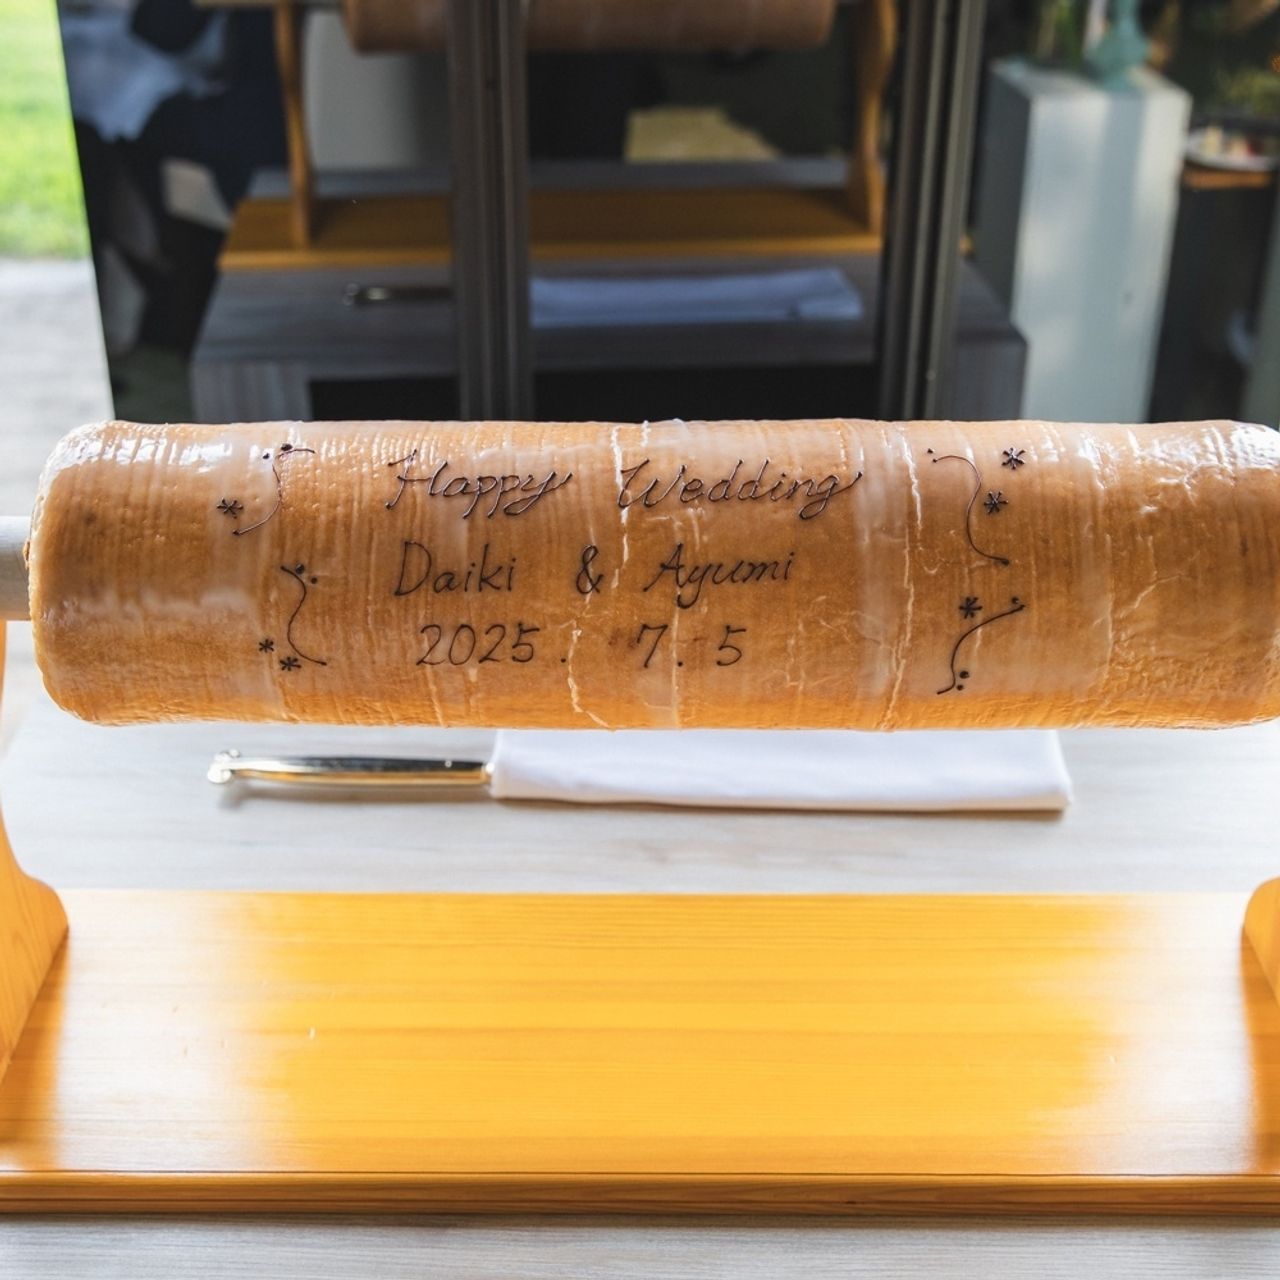 Happy Wedding
Daiki & Ayumi
2025. 7. 5